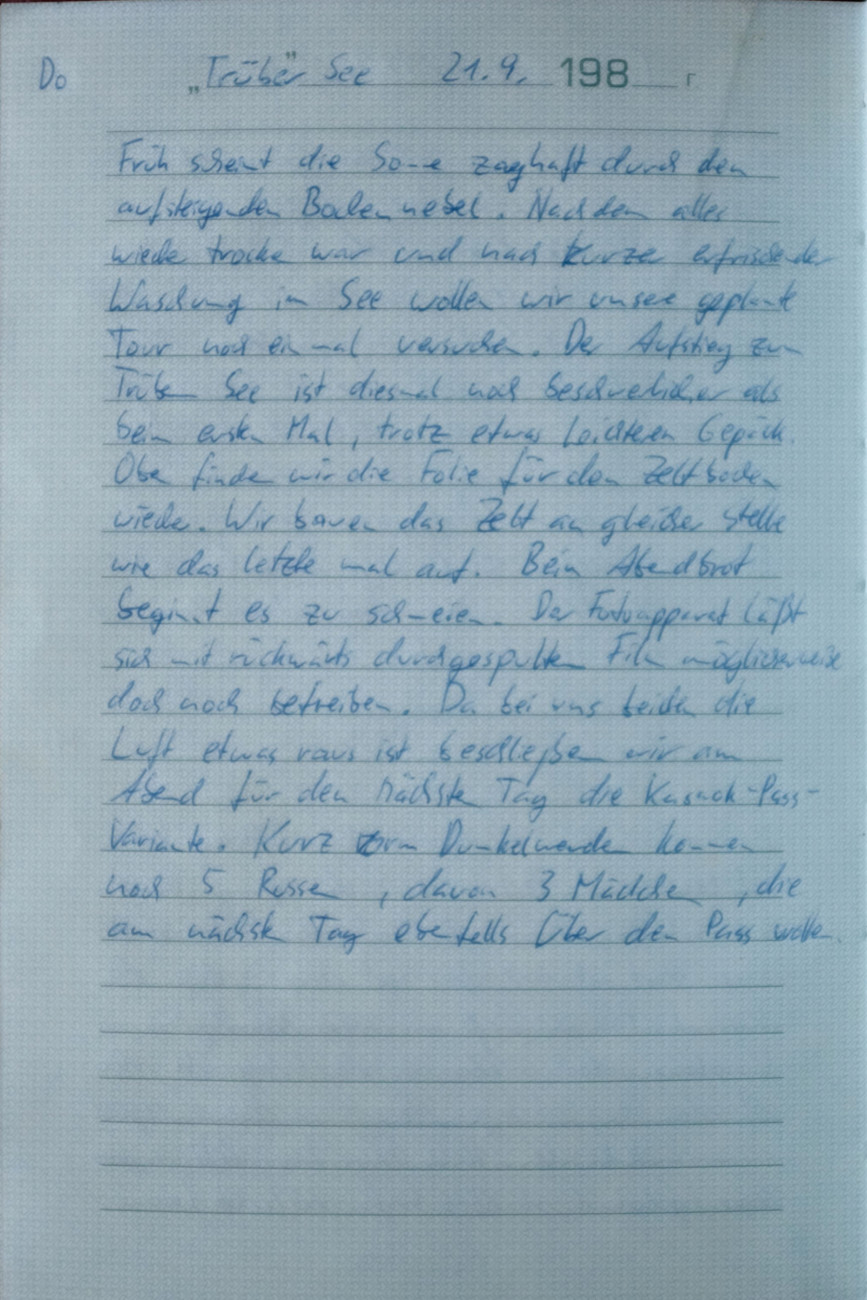 Do „Trüber" See 21.9. 198 г
Früh scheint die Sonne zaghaft durch den
aufsteigenden Bodennebel. Nachdem alles
wieder trocken war und nach kurzer erfrischender
Waschung im See wollen wir unsere geplante
Tour noch einmal versuchen. Der Aufstieg zum
Trüben See ist diesmal noch beschwerlicher als
beim ersten Mal, trotz etwas leichterem Gepäck.
Oben finden wir die Folie für den Zeltboden
wieder. Wir bauen das Zelt an gleicher Stelle
wie das letzte mal auf. Beim Abendbrot
beginnt es zu schneien. Der Fotoapparat läßt
sich mit rückwärts durchgespulten Film möglicherweise
doch noch betreiben. Da bei uns beiden die
Luft etwas raus ist beschließen wir am
Abend für den nächsten Tag die Kasack-Pass-
Variante. Kurz vorm Dunkelwerden kommen
noch 5 Russen, davon 3 Mädchen, die
am nächsten Tag ebenfalls über den Pass wollen.